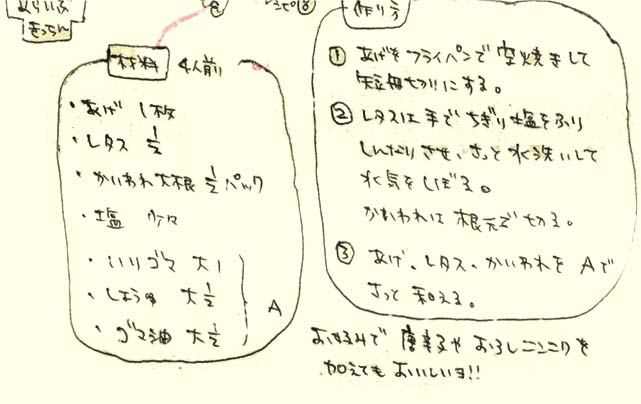 きっちん
作り方
材料 4人前
・あげ 1枚
・レタス 1/2
・かいわれ大根 1/2パック
・塩 少々
・いりゴマ 大1
・しょうゆ 大1/2
・ゴマ油 大1/2
A
① あげをフライパンで空焼きして
短冊切りにする。
② レタスは手でちぎり塩をふり
しんなりさせ、さっと水洗いして
水気をしぼる。
かいわれは根元を切る。
③ あげ、レタス、かいわれをAで
さっと和える。
お好みで唐辛子やおろしニンニクを
加えてもおいしいヨ!!